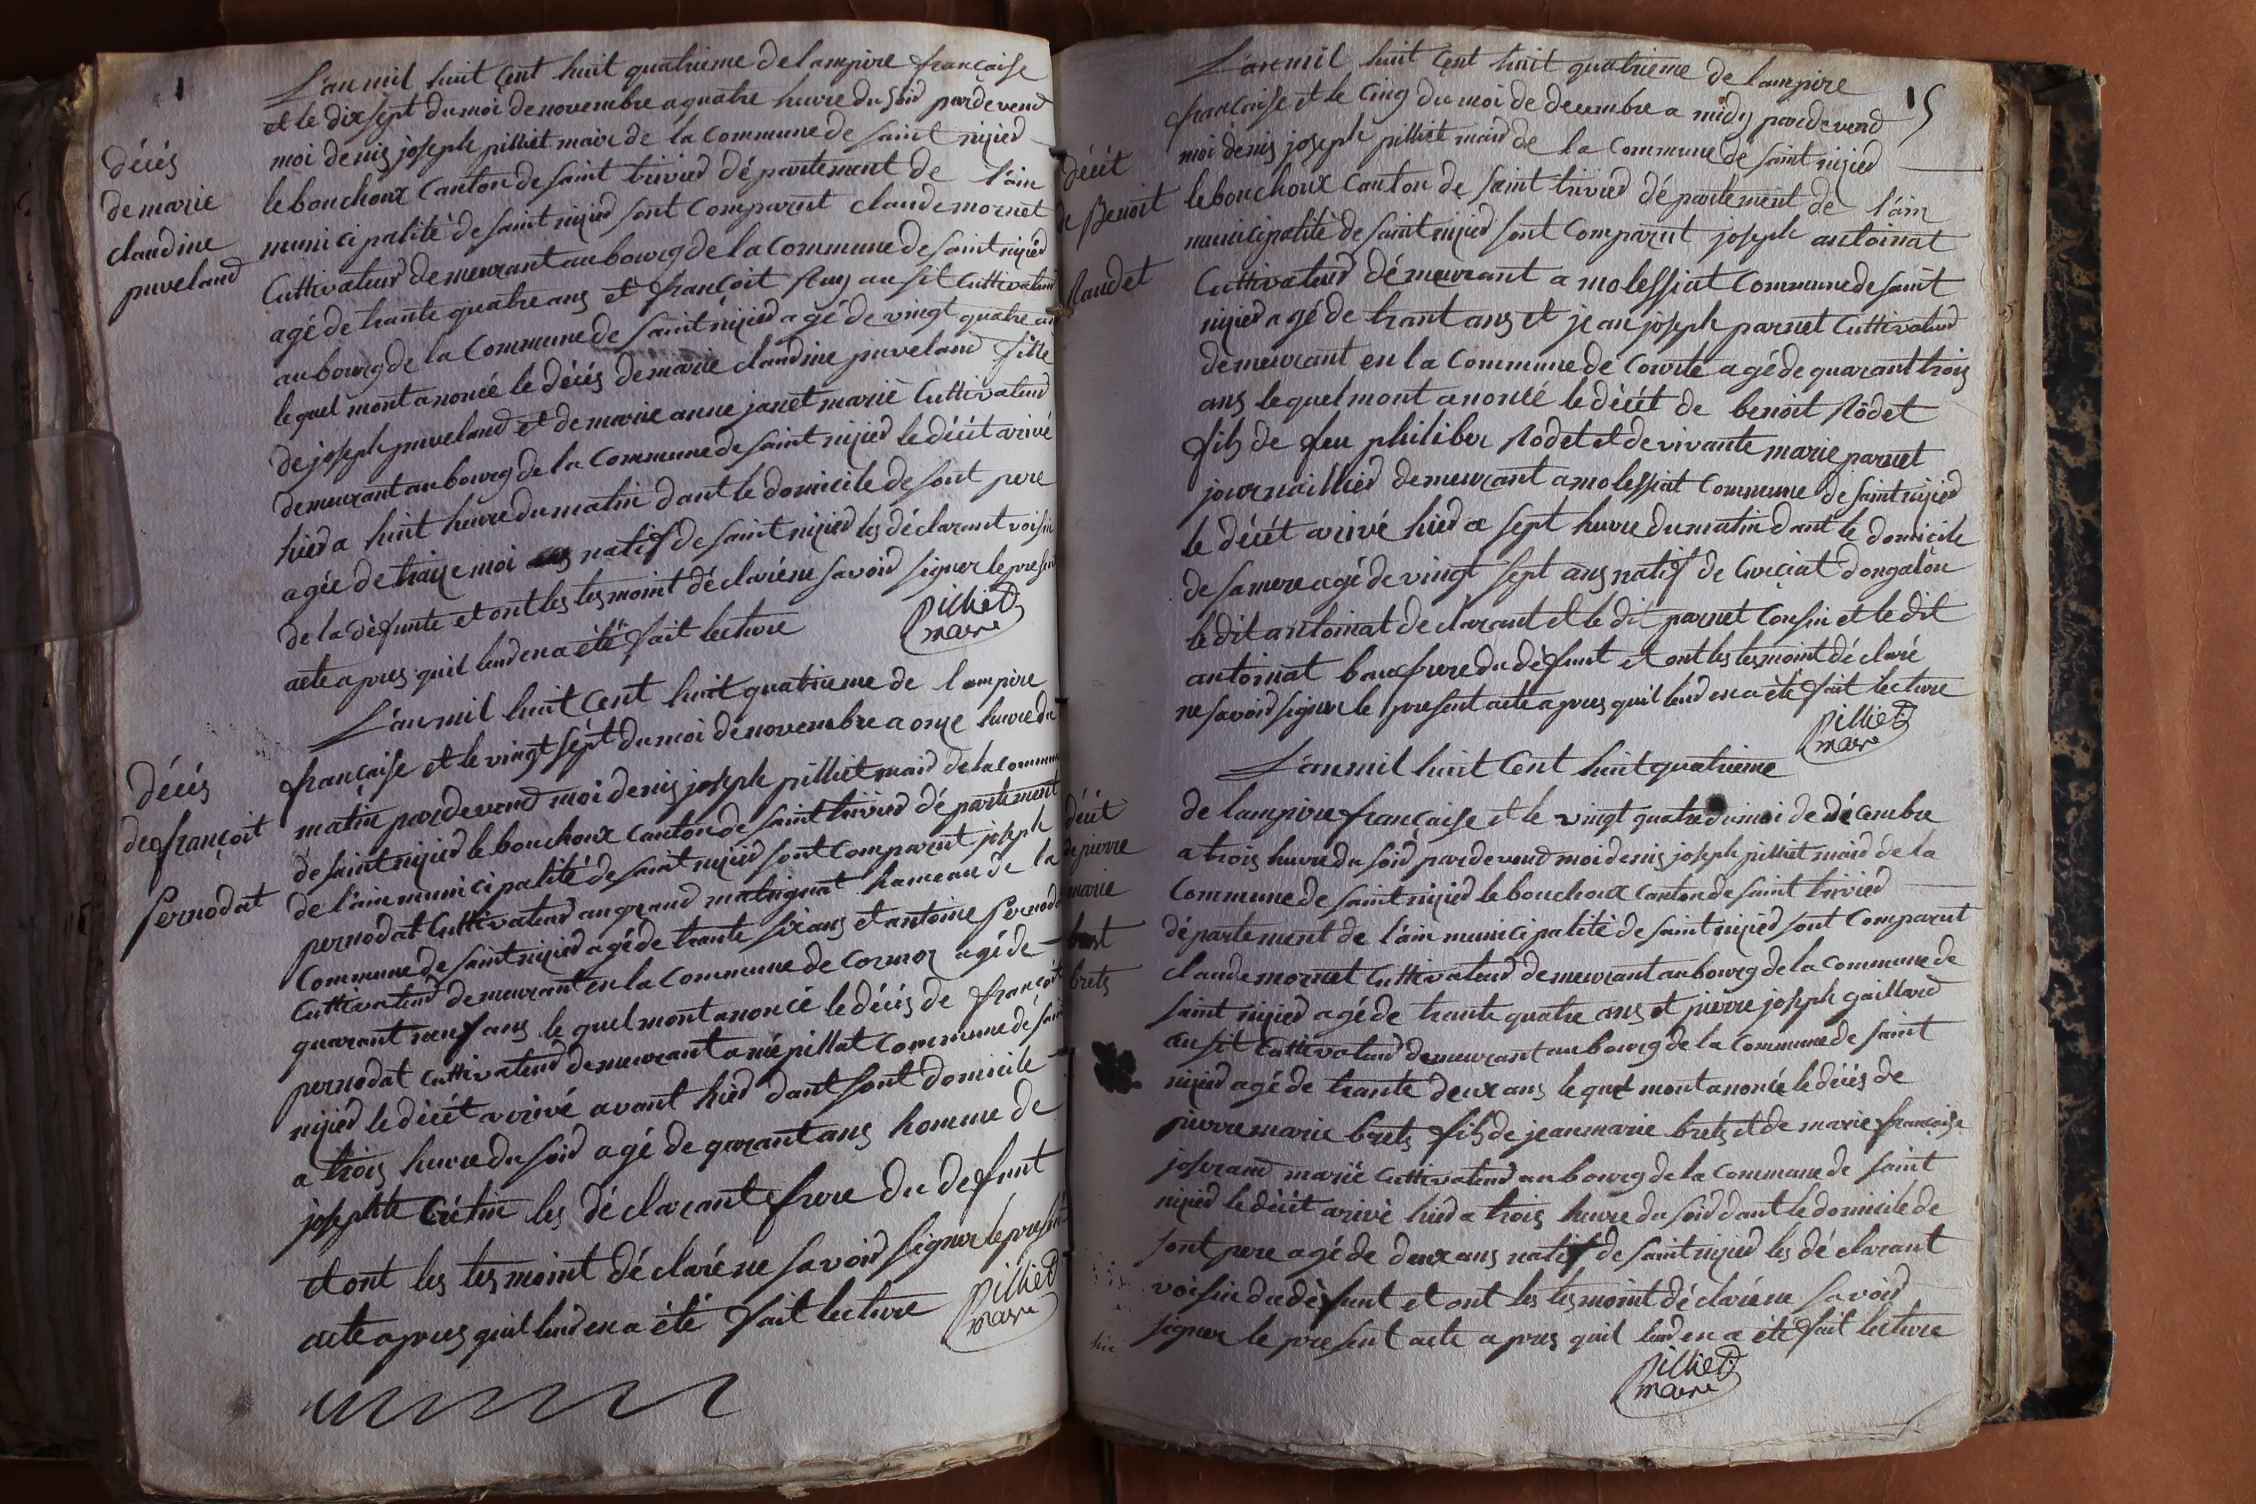 décés
de marie
claudine
puveland
L'an mil huit Cent huit quatrieme de lampire francaise
et le dix sept du moi de novembre a quatre heure du soid pardevend
moi denis joseph pilliet maire de la Commune de saint nizied
le bouchoux Canton de saint trivied département de l'ain
municipalité de saint nizied sont Comparut claude mornet
Cultivateud demeurant au bourg de la Commune de saint nizied
agé de trante quatre ans et françoit Ruy ausit Cultivateud
au bourg de la Commune de saint nizied agé de vingt quatre an
le quel mont anoncé le décés de marie claudine puveland fille
de joseph puveland et de marie anne janet marié Cultivateud
demeurant au bourg de la Commune de saint nizied le décét arivé
hied a huit heure du matin dant le domicile de sont pere
agée de traize moi natif de saint nizied les déclarant voisin
de la défunte et ont les tesmoint déclaréne savoid signer le presen
acte apres quil leud en a été fait lecture
Pilliet
maire
décés
de françoit
Pernodat
L'an mil huit Cent huit quatrieme de lampire
francaise et le vingt sept du moi de novembre a onze heure du
matin pardevend moi denis joseph pilliet maid de la Commune
de saint nizied le bouchoux Canton de saint trivied département
de l'ain municipalité de saint nizied sont Comparut joseph
pernodat Cultivateud au grand malrignat hameau de la
Commune de saint nizied agé de trante six ans et antoine Pernoda
Cultivateud demeurant en la Commune de Cormoz agé de
quarant neuf ans le quel mont anoncé le décés de françoit
pernodat Cultivateud demeurant a népillat Commune de sain
nizied le décét arrivé avant hied dant sont domicile
a trois heure du soid agé de quarant ans homme de
josephte Crétin les déclarant frere du defunt
et ont les tesmoint déclaréne savoid signer le present
acte apres quil leud en a été fait lecture
Pilliet
maire
15
décét
de Benoit
Raudet
L'an mil huit Cent huit quatrieme de lampire
francaise et le Cinq du moi de decembre a midy pardevend
moi denis joseph pilliet maid de la Commune de saint nizied
le bouchoux Canton de saint trivied département de l'ain
municipalité de saint nizied sont Comparut joseph antoinat
Cultivateud démeurant a molessiat Commune de saint
nizied agé de trant ans et jean joseph parnet Cultivateud
demeurant en la Commune de Courte agé de quarant trois
ans le quel mont anoncé le décét de benoit Rodet
fils de feu philiber Rodet et de vivante marie parnet
journaillied demeurant a molessiat Commune de saint nizied
le décét arivé hied a sept heure du matin dant le domicile
de sa mere agé de vingt sept ans natif de Curciat dongalon
le dit antoinat declarant et le dit parnet Consin et le dit
antoinat beaufrere du défunt et ont les tesmoint déclaré
ne savoid signer le present acte apres quil leud en a été fait lecture
Pilliet
maire
décét
de pierre
marie
brets
L'an mil huit Cent huit quatrieme
de lampire française et le vingt quatre du moi de décembre
a trois heure du soid pardevend moi denis joseph pilliet maid de la
Commune de saint nizied le bouchoux Canton de saint trivied
département de l'ain municipalité de saint nizied sont Comparut
claude mornet Cultivateud demeurant au bourg de la Commune de
saint nizied agé de trante quatre ans et pierre joseph gaillard
ausit Cultivateud demeurant au bourg de la Commune de saint
nizied agé de trante deux ans le quel mont anoncé le décés de
pierre marie brets fils de jean marie brets et de marie française
joserand marié Cultivateud au bourg de la Commune de saint
nizied le décét arivé hied a trois heure du soid dant le domicile de
sont pere agé de deux ans natif de saint nizied les déclarant
voisin du défunt et ont les tesmoint déclaréne savoid
signer le present acte apres quil leud en a été fait lecture
Pilliet
maire